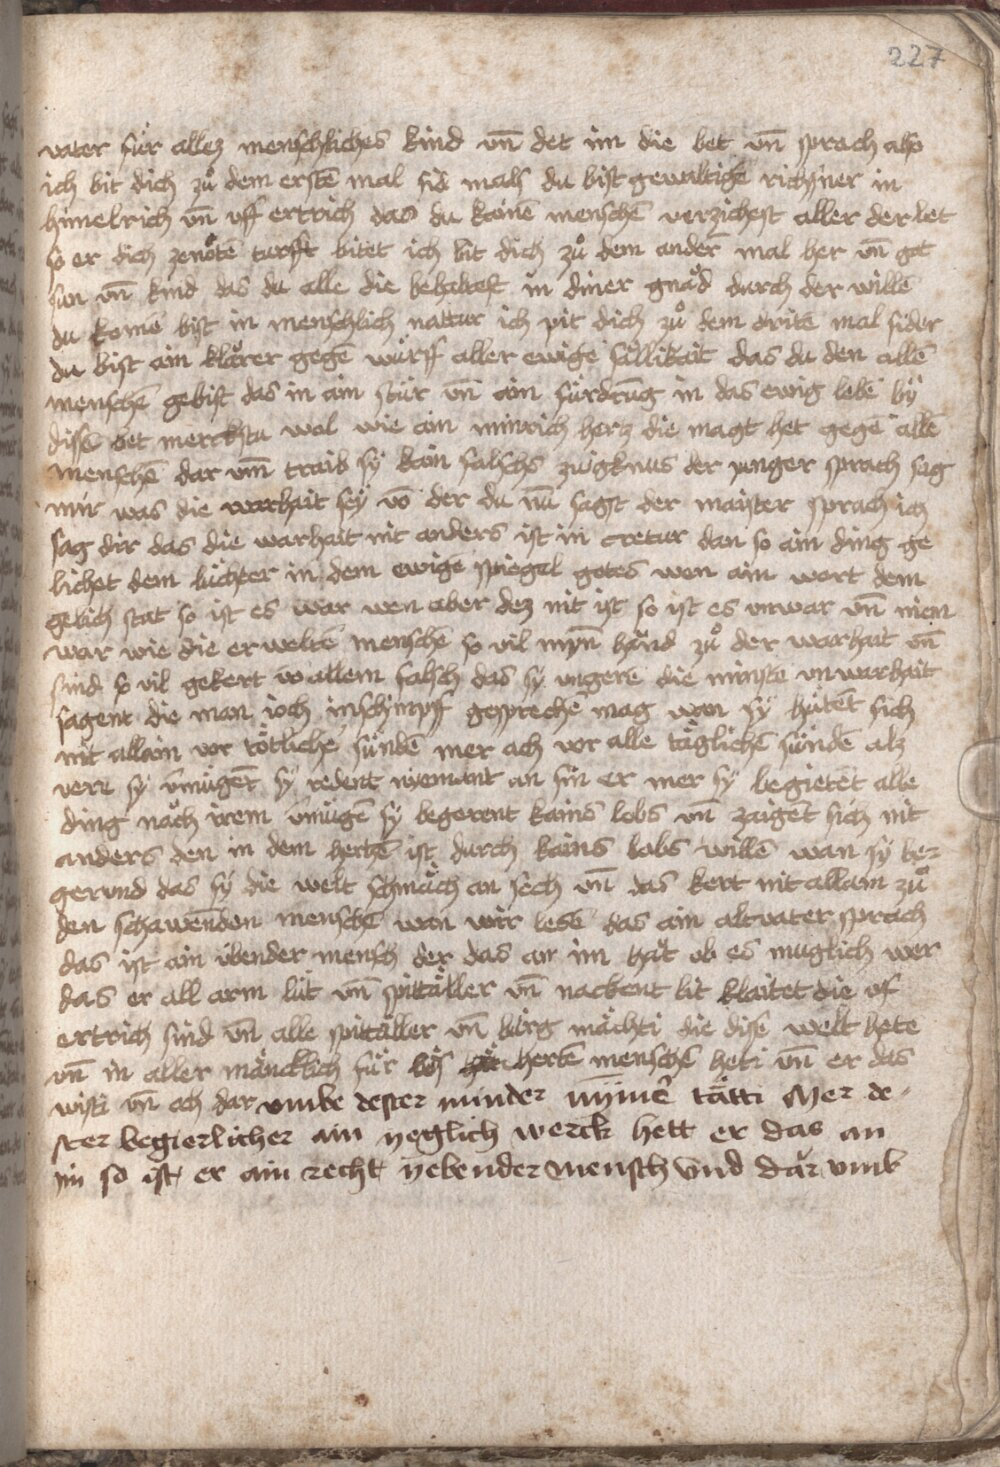 227
vater für allez menschliches kind vn̄ det im die bet vn̄ sprach also
ich bit dich zů dem erstē mal sid mals du bist gewaltigē richsner in
himelrich vn̄ vff ertrich das du kainē menschē verzichest aller der bet
so er dich zenötē turfft bitet ich bit dich zů dem anderr mal her vn̄ got
sun vn̄ kind das du alle die behaltest in diner gnăd durch der willē
du komē bist in menschlich nattur ich pit dich zů dem dritē mal sider
du bist ain klărer gegē wurff aller ewigē sällikait das du den allē
menschē gebist das in ain stür vn̄ ain fürdrūg in das ewig lebē by
dissē bet merckstu wol wie ain minrich herz die magt het gegē allē
menschē dar vm̄ traib sy kain falschs zügknus der junger sprach sag
mir was die warhait sey vō der du nū sagst der maister sprach ich
sag dir das die warhait nit anders ist in cretur dan so ain ding ge
lichet dem luchter in dem ewigē spiegel gotes wen ain wort dem
gelich stat so ist es war wen aber dez nit ist so ist es vnwar vn̄ nien
war wie die erweltē menschē so vil mȳn hănd zů der warhait vn̄
sind so vil gekert vō allem falsch das sy vngerē die minste vnwarhait
sagent die man joch inschimpff gesprechē mag wan sy hütēt sich
nit allain vor tötlichē sündē mer ach vor alle täglichē sündē alz
verr sy vmügēt sy redent niemant an sin er mer sy begietēt alle
ding năch irem vmügē sy begerent kains lobs vn̄ zaigēt sich nit
anders den in dem hertzē ist durch kains lobs willē wan sy be-
gerund das sy die welt schmăch an sech vn̄ das kert nit allain zů
den schawendon menschē wan wir lesē das ain altvater sprach
das ist ain übender mensch der das an im hăt ob es müglich wer
das er all arm lüt vn̄ spittäller vn̄ nackent lit klaitet die vf
ertrich sind vn̄ alle spittäller vn̄ bürg mächti die dise welt hete
vn̄ in aller mäncklich für bös herbē menschē heti vn̄ er das
wisti vn̄ ach dar vmbe dester minder nimēr tätti Mer de
ster begierlicher ain yeglich werck hett er das an
im so ist er ain recht yebender mensch vnd dăr vmb